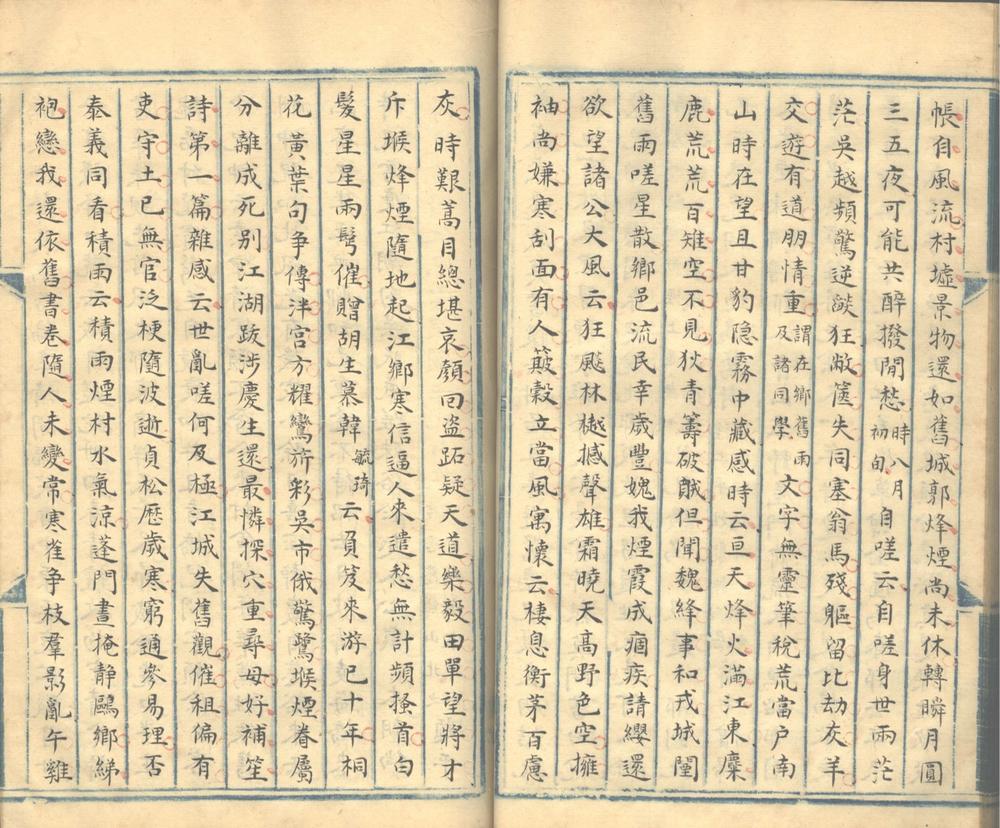 帳自風流村墟景物還如舊城郭烽煙尚未休轉瞬月圓
三五夜可能共醉撥閒愁時八月初旬自嗟云自嗟身世兩茫
茫吳越頻驚逆燄狂敝篋失同塞翁馬殘軀留比劫灰羊
交遊有道朋情重謂在鄉舊雨及諸同學文字無靈筆稅荒當户南
山時在望且甘豹隐霧中藏感時云亘天烽火滿江東麋
鹿荒荒百雉空不見狄青籌破賊但聞魏絳事和戎城闉
舊雨嗟星散鄉邑流民幸歲豐媿我煙霞成痼疾請纓還
欲望諸公大風云狂颷林樾撼聲雄霜曉天高野色空擁
袖尚嫌寒刮面有人簸穀立當風寓懷云棲息衡茅百慮
灰時艱蒿目總堪哀顏回盜跖疑天道樂毅田單望將才
斥堠烽煙隨地起江鄉寒信逼人來遣愁無計頻搔首白
髮星星兩鬢催贈胡生慕韓毓琦云負笈來游已十年桐
花黃葉句争傳泮宮方耀鸞旂彩吳市俄驚鷺堠煙眷屬
分離成死别江湖跋涉慶生還最憐探穴重尋母好補笙
詩第一篇雜感云世亂嗟何及極江城失舊觀催租偏有
吏守土已無官泛梗隨波逝貞松歷歲寒窮通參易理否
泰義同看積雨云積雨煙村水氣涼蓬門晝掩静鷗鄉綈
袍戀我還依舊書卷隨人未變常寒雀争枝羣影亂午雞